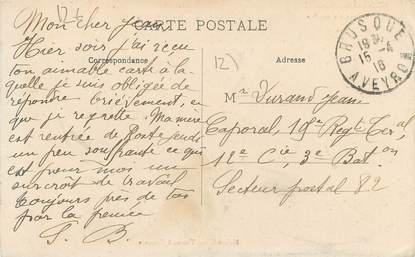 12 1/2
CARTE POSTALE
Correspondance
Adresse
Mon cher Jean
Hier soir j'ai reçu
ton aimable carte à la-
quelle je suis obligée de
répondre brièvement, ce
que je regrette. Ma mère
est rentrée de jeudi,
un peu souffrante ce qui
est pour moi un
surcroit de travail
Toujours près de toi
par la pensée
S. B.
12)
BRUSQUE
15 -4
16
AVEYRON
Mr Durand Jean
Caporal, 19e Regt Teral,
12e Cie, 3e Baton
Secteur postal 82